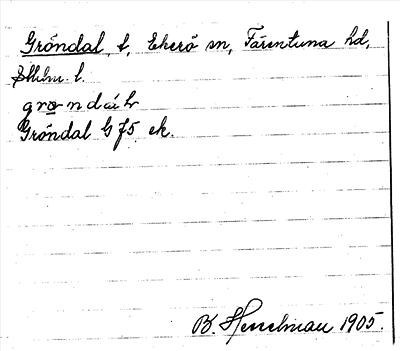 Gröndal, t, Ekerö sn, Färentuna hd,
Sthlms l.
grøndáh
Gröndal G 75 ek.
B. Hesselman 1905.